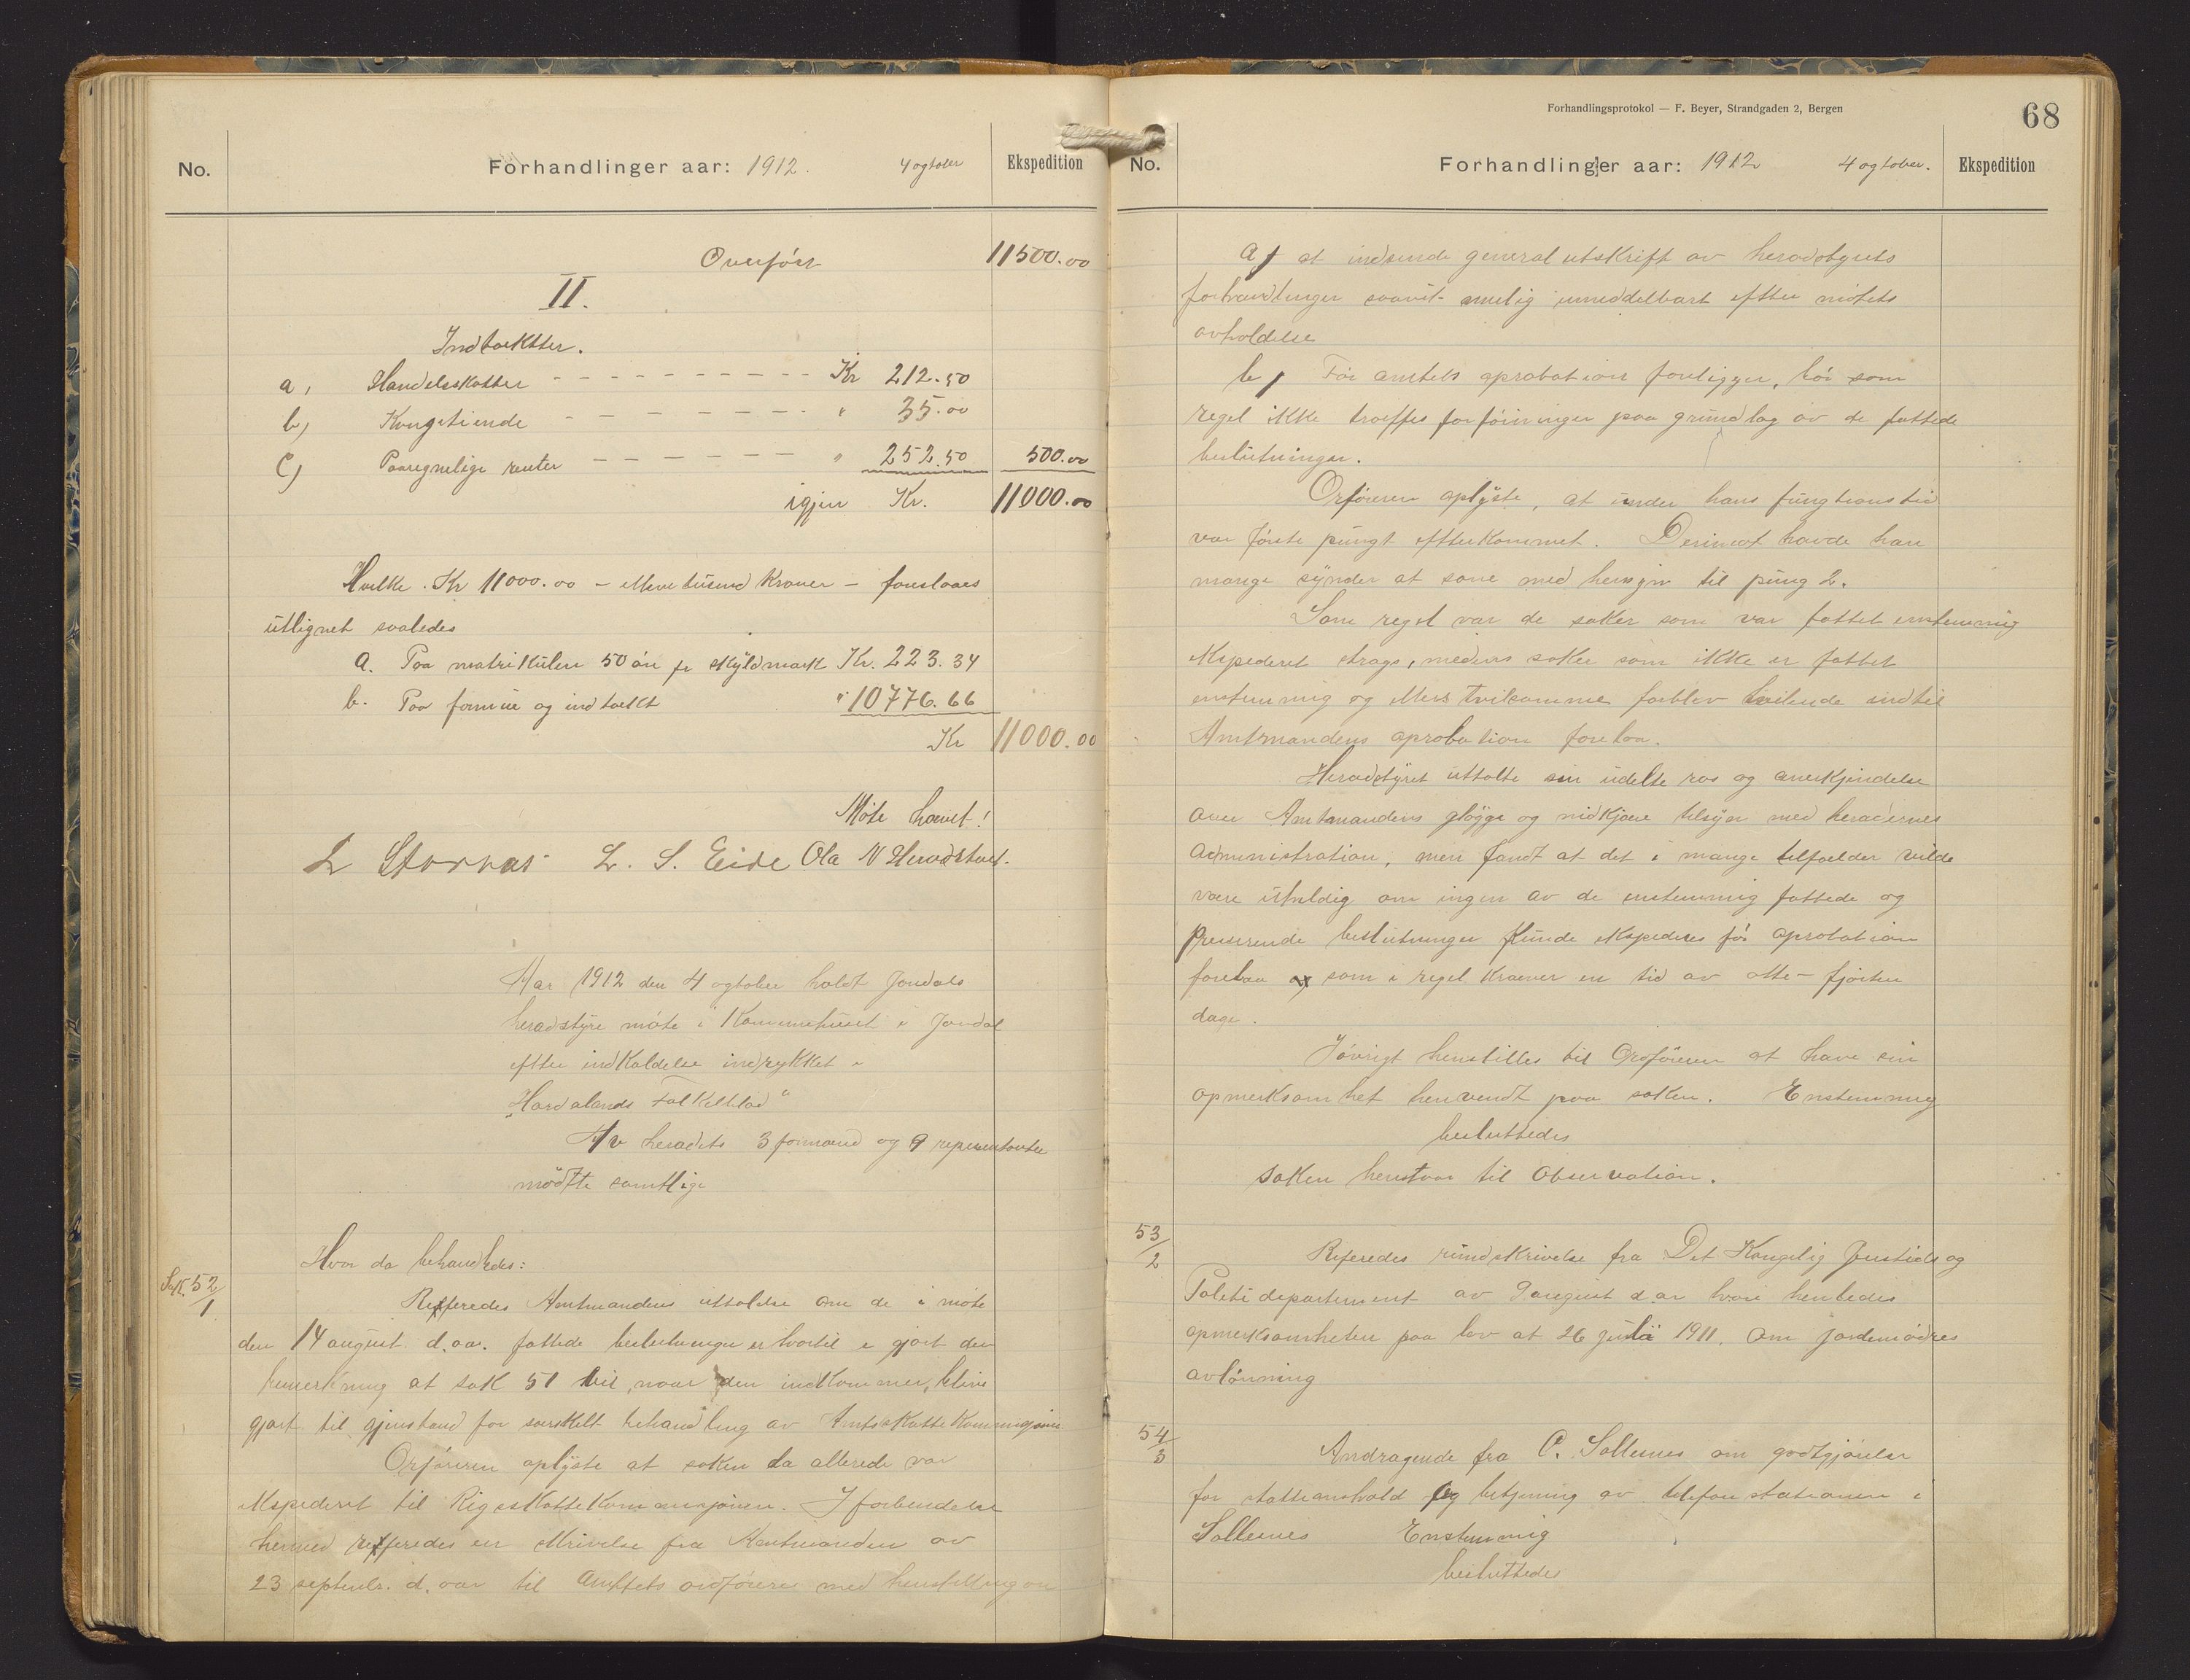 No.
Forhandlinger aar: 1912.
4 ogtober
Ekspedition
Overført 11500.00
II.
Indtækter.
a, Handelsskatter Kr 212.50
b, Kongetiende " 35.00
c) Paaregnelige renter " 252.50 500.00
igjen Kr. 11000.00
Hvilke Kr 11000.00 - elleve tusend Kroner - foreslaaes
utlignet saaledes
a. Paa matrikulen 50 øre pr skyldmark Kr. 223.34
b. Paa formue og indtækt " 10776.66
Kr 11000.00
Møte hævet!
L Stornæs L. S. Eide Ola N Heradstveit.
Aar 1912 den 4 ogtober holdt Jondals
heradstyre møte i Kommunehuset i Jondal
efter indkaldelse indrykket i
"Hordalands Folkeblad"
Av heradets 3 formænd og 9 representanter
mødte samtlige
Hvor da behandledes:
Sak. 52/1
Refferedes Amtmandens uttalelse om de i møte
den 14 august d. aa. fattede beslutninger er hvortil e gjort den
bemerkning at sak 51 vil, naar den indkommer, blive
gjort til gjenstand for særskilt behandling av Amtsskattekommisjonen
Orføreren oplyste at saken da allerede var
ekspederet til Rigsskattekommisjonen. I forbindelse
hermed refferedes en skrivelse fra Amtmanden av
23 septembr. d. aar til Amtets ordførere med henstilling om
Forhandlingsprotokol — F. Beyer, Strandgaden 2, Bergen
68
No.
Forhandlinger aar: 1912
4 ogtober.
Ekspedition
a, at indsende general utskrift av heradstyrets
forhandlinger saavit mulig umiddelbart efter møtets
avholdelse
b, Før amtets aprobation foreligger, bør som
regel ikke træffes forføininger paa grundlag av de fattede
beslutninger.
Orføreren oplyste, at under hans fungtionstid
var første pungt efterkommet. Derimot havde han
mange synder at sone med hensyn til pung 2.
Som regel var de saker som var fattet enstemmig
ekspederet strags, medens saker som ikke er fattet
enstemmig og ellers tvilsomme forblev hvilende indtil
Amtmandens aprobation forelaa.
Heradstyret uttalte sin udelte ros og anerkjendelse
over Amtmandens gløgge og nidkjære tilsyn med heradernes
administration, men fandt at det i mange tilfælder vilde
være uheldig om ingen av de enstemmig fattede og
Presserende beslutninger kunde ekspederes før aprobation
forelaa som i regel kræver en tid av otte - fjorten
dage.
Iøvrigt henstilles til Orføreren at have sin
opmerksomhet henvendt paa saken. Enstemmig
besluttedes
Saken henstaar til Observation.
53/2
Referedes rundskrivelse fra Det Kongelig Justids og
Politidepartement av 9 august d ar hvori henledes
opmerksomheten paa lov at 26 juli 1911. Om jordmødres
avlønning
54/3
Andragende fra C. Sollesnes om godtgjørelse
for stationshold og betjening av telefonstationen i
Sollesnes Enstemmig
besluttedes